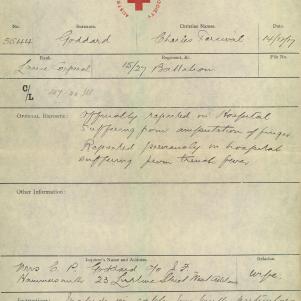 No. Surname. Christian Names. Date.
Goddard Charles Percival 14/12/17
Rank. Regiment, &c. File No.
Lance Corporal 15/27 Battalion
C/L
Official Reports: Officially reported in Hospital
suffering from amputation of finger
Reported previously in hospital
suffering from trench fever
Other Information:
Inquirer's Name and Address. Relation.
Mrs C. P. Goddard c/o J.
23 Street wife